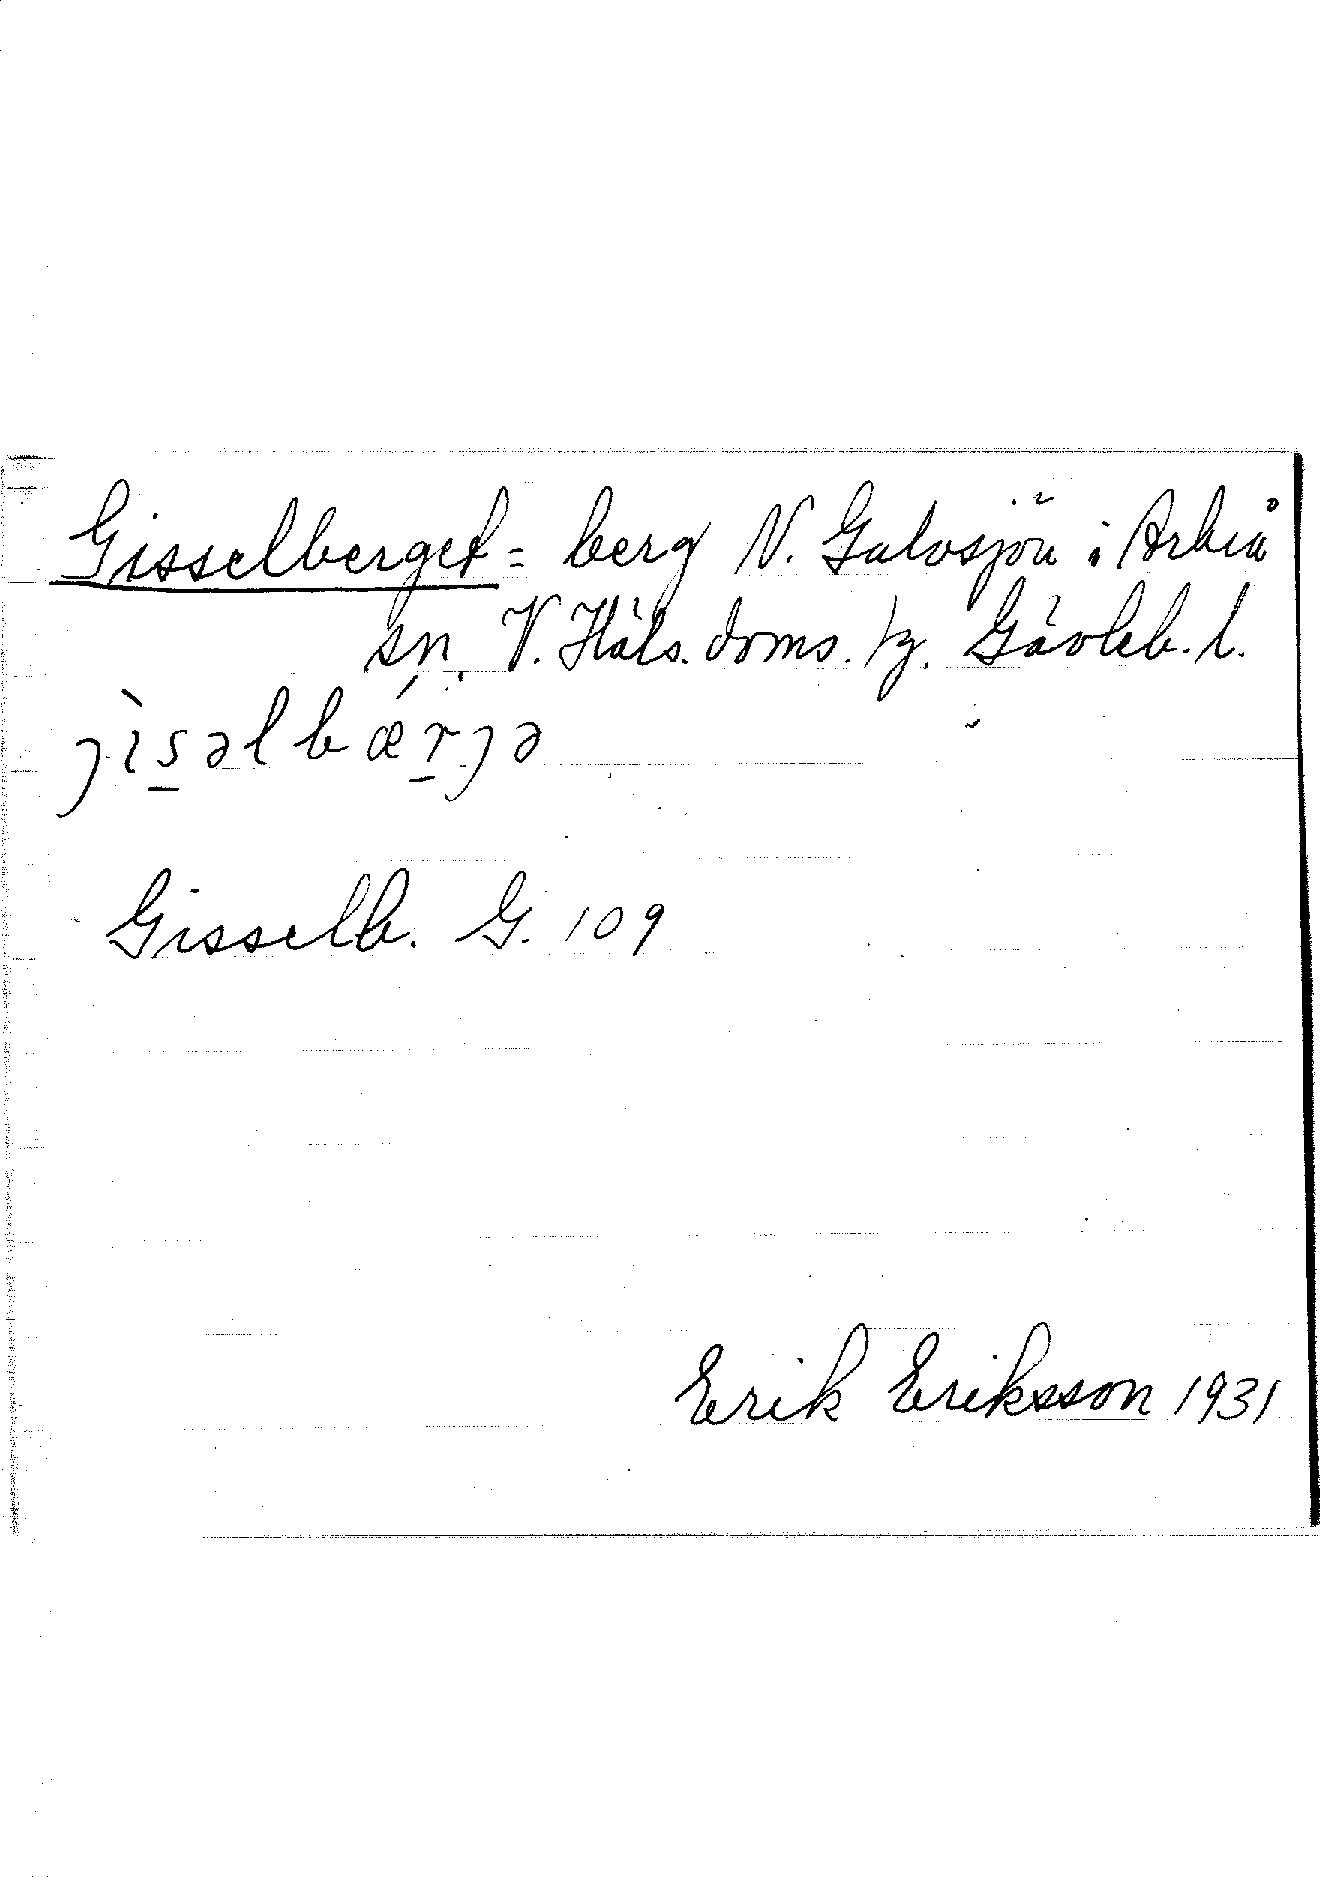 Gisselberget = berg N. Galvsjön i Arbrå
sn. V. Häls. doms. tg. Gävleb. l.
jìsəlbǽrjə
Gisselb. G. 109
Erik Eriksson 1931